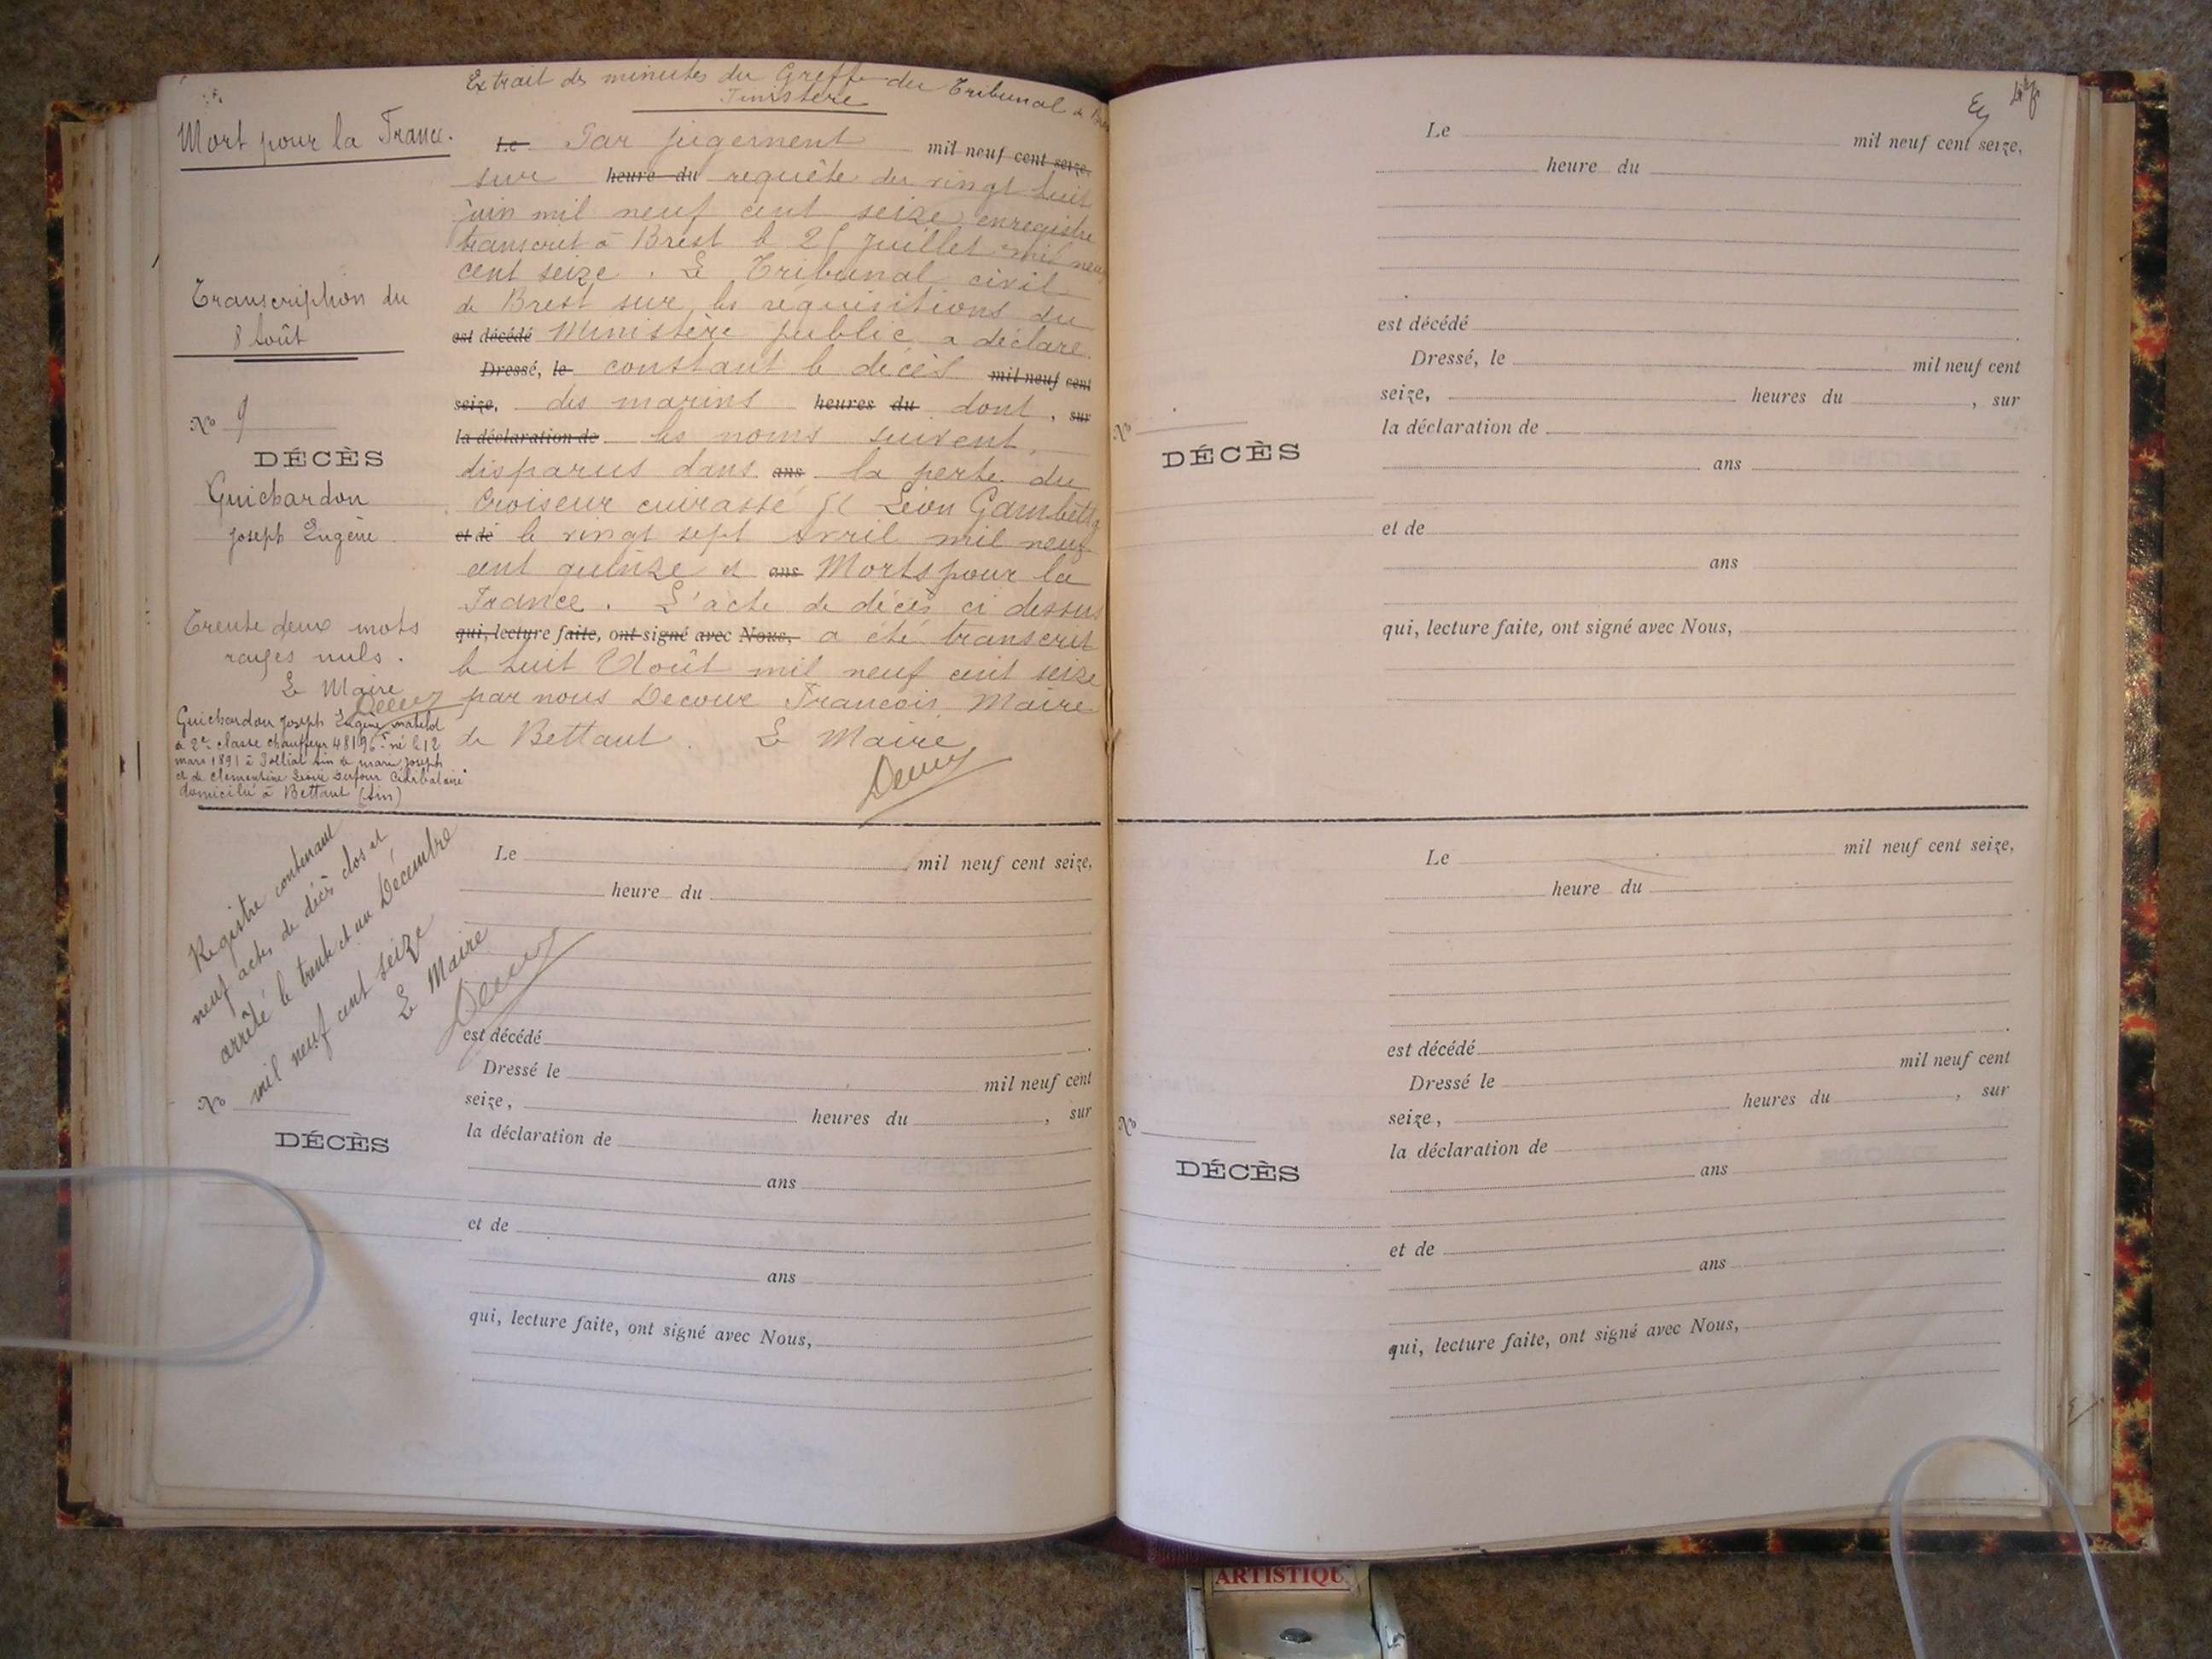 Extrait des minutes du Greffe du Tribunal de
Finistère
Mort pour la France.
Le Par jugement mil neuf cent seize,
sur heure du requête du vingt huit
juin mil neuf cent seize, enregistre
transcrit à Brest le 25 Juillet mil neuf
cent seize. Le Tribunal civil
de Brest sur les réquisitions du
est décédé Ministère public a déclaré
Dressé, le constant le décès mil neuf cent
seize, des marins heures du dont, sur
la déclaration de les noms suivent,
disparus dans ans la perte du
Croiseur cuirassé Léon Gambetta
et de le vingt sept Avril mil neuf
cent quinze et ans Morts pour la
France. L'acte de décès ci dessus
qui, lecture faite, ont signé avec Nous, a été transcrit
le huit Août mil neuf cent seize
par nous Decour Francois Maire
de Bettant. Le Maire
Transcription du
8 Août
No 9
DÉCÈS
Guichardon
Joseph Eugène
Trente deux mots
rayés nuls.
Le Maire
Guichardon Joseph Eugène matelot
de 2e classe chauffeur 48196 né le 12
mars 1891 à Polliat Ain de marie Joseph
et de Clementine Dufour Célibataire
domicilié à Bettant (Ain)
Registre contenant
neuf actes de décès clos et
arrêté le trente et un Décembre
mil neuf cent seize
Le Maire
Le mil neuf cent seize,
heure du
est décédé
Dressé le mil neuf cent
seize, heures du , sur
la déclaration de
ans
et de
ans
qui, lecture faite, ont signé avec Nous,
No
DÉCÈS
Le mil neuf cent seize,
heure du
est décédé
Dressé, le mil neuf cent
seize, heures du , sur
la déclaration de
ans
et de
ans
qui, lecture faite, ont signé avec Nous,
No
DÉCÈS
Le mil neuf cent seize,
heure du
est décédé
Dressé le mil neuf cent
seize, heures du , sur
la déclaration de
ans
et de
ans
qui, lecture faite, ont signé avec Nous,
No
DÉCÈS
ARTISTIQU